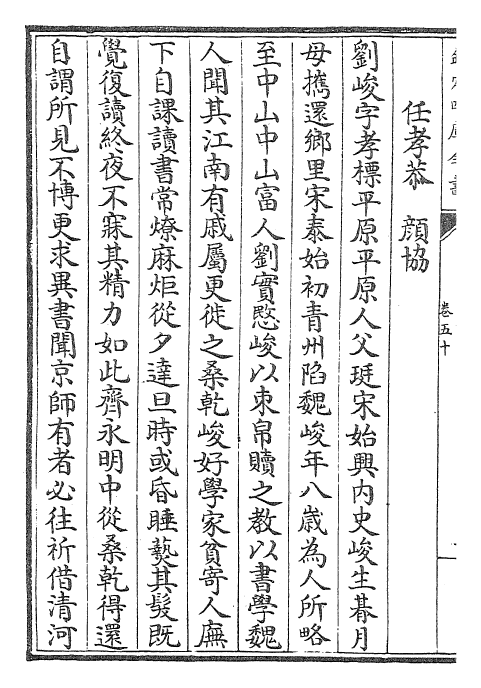 卷五十
任孝恭　顔協
劉峻字孝標平原平原人父珽宋始興内史峻生朞月
母攜還鄉里宋泰始初青州陷魏峻年八歲為人所略
至中山中山富人劉實愍峻以束帛贖之教以書學魏
人聞其江南有戚屬更徙之桑乾峻好學家貧寄人廡
下自課讀書常燎麻炬從夕達旦時或昏睡爇其髮既
覺復讀終夜不寐其精力如此齊永明中從桑乾得還
自謂所見不博更求異書聞京師有者必往祈借清河